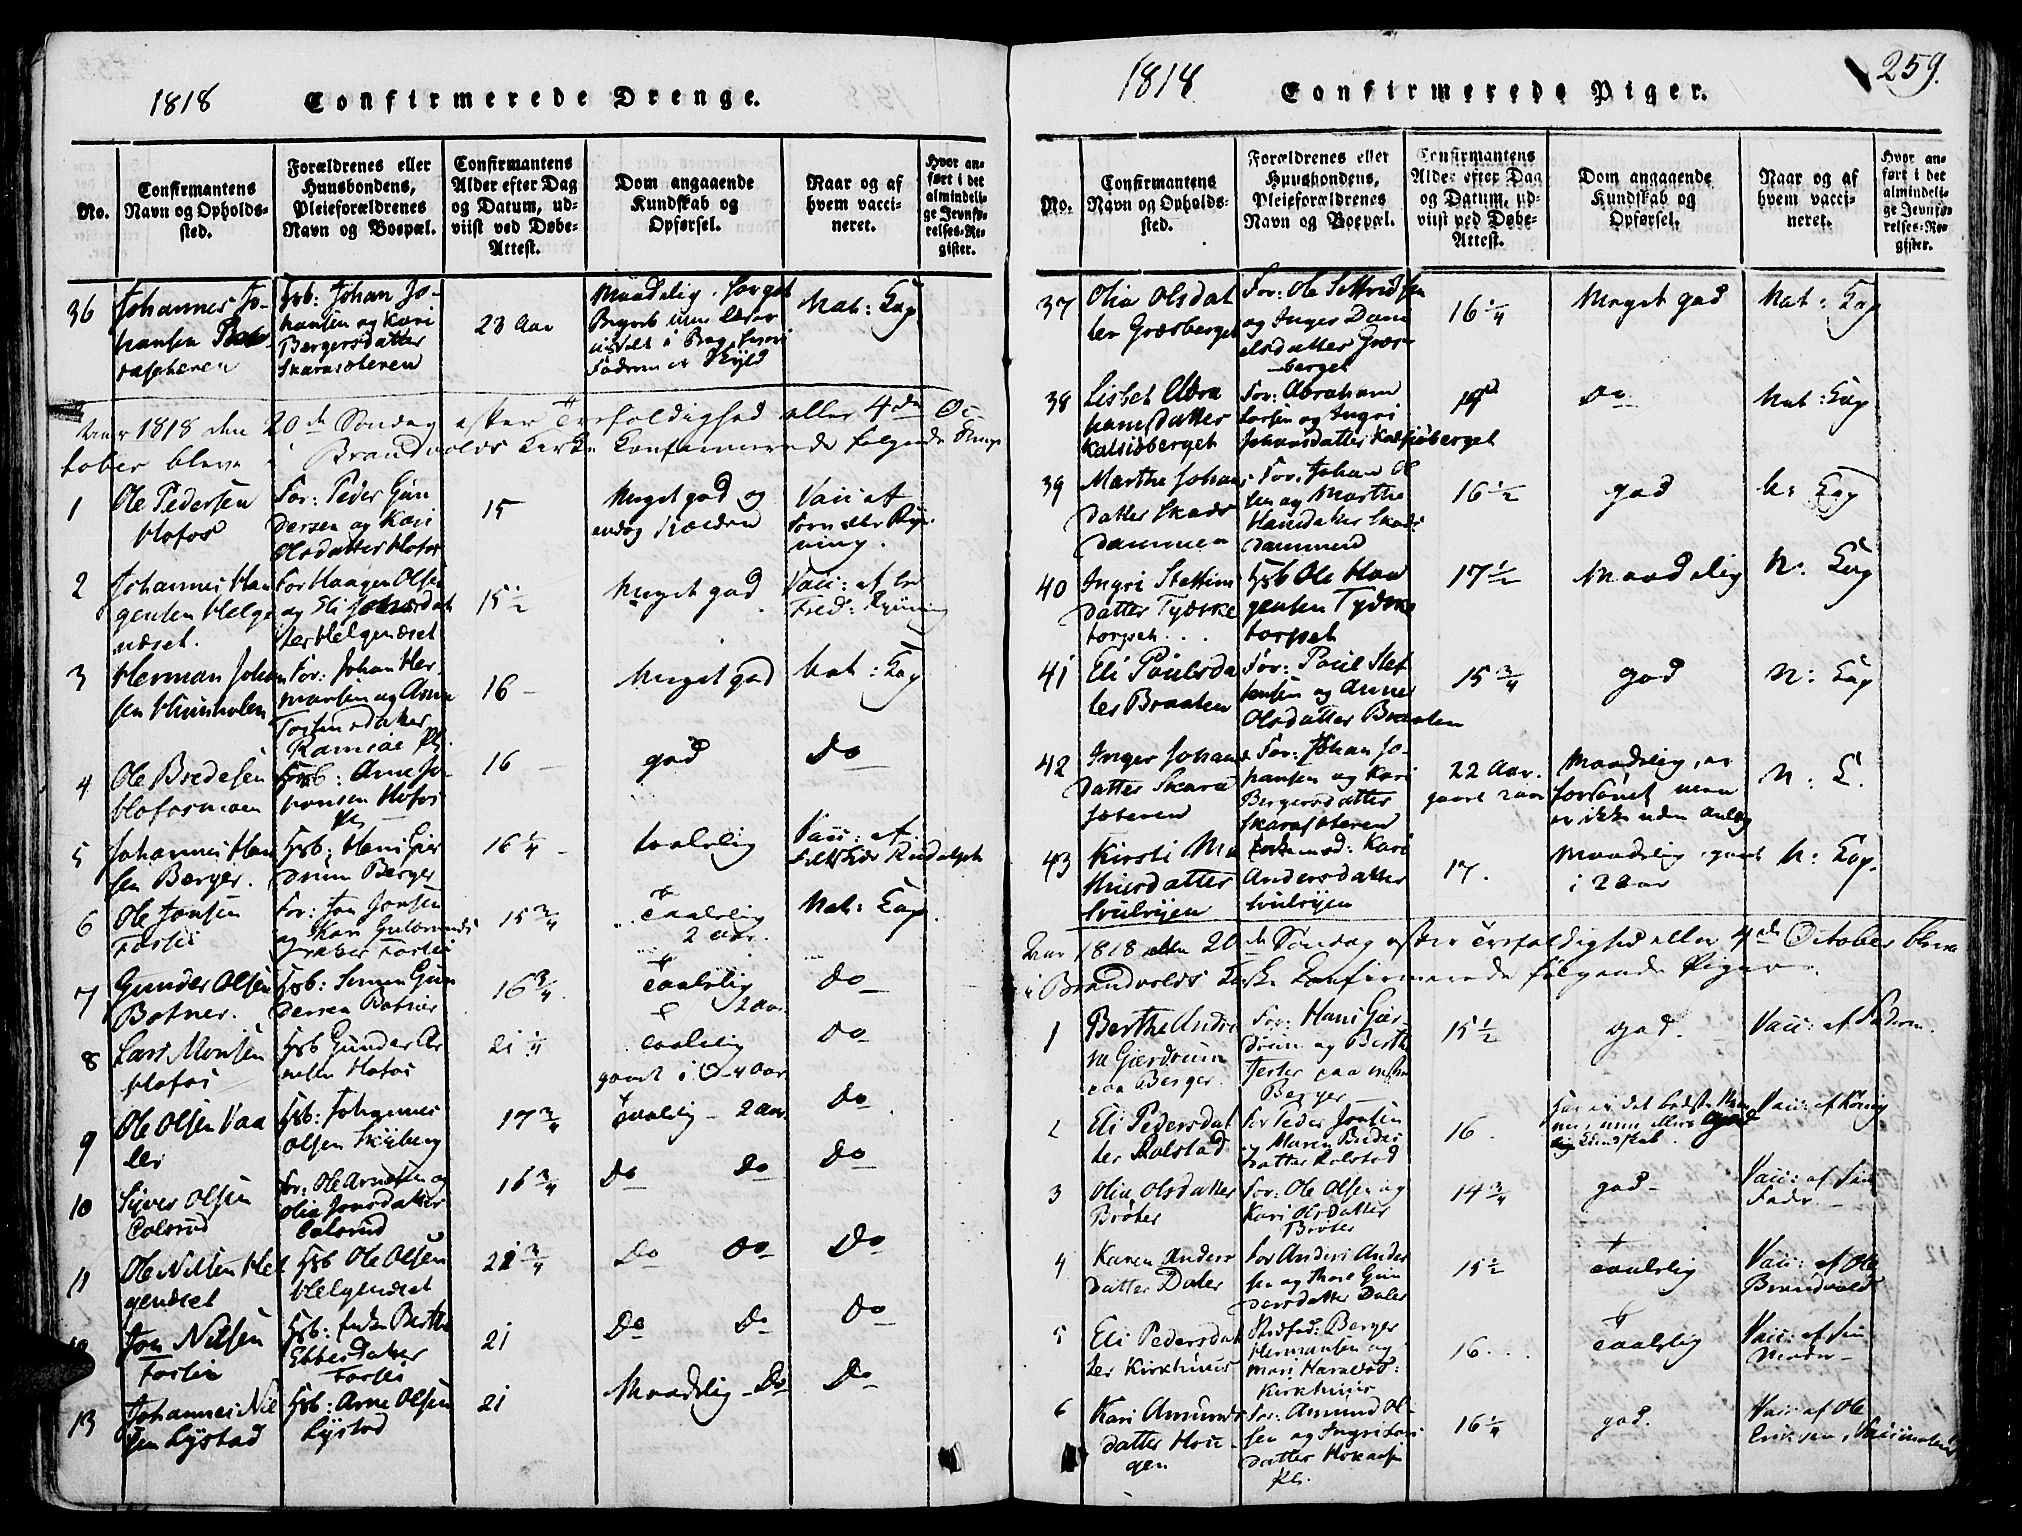 1818
Confirmerede Drenge.
No.
Confirmantens
Navn og Opholds-
sted.
Forældrenes eller
Huusbondens,
Pleieforældrenes
Navn og Boepæl.
Confirmantens
Alder efter Dag
og Datum, ud-
viist ved Døbe-
Attest.
Dom angaaende
Kundskab og
Opførsel.
Naar og af
hvem vacci-
neret.
Hvor an-
ført i det
almindeli-
ge Jevnfø-
relses-Re-
gister.
36
Johannes Jo-
hansen
Hsb: Johan Jo-
hansen og Kari
Bergersdatter
Skarasæteren
23 Aar
Maadelig.
Nat: Kop
Aar 1818 den 20de Søndag efter Trefoldighed eller 4de Oc-
tober bleve i Brandvolds Kirke Confirmerede følgende Drenge
1
Ole Pedersen
Hofos
For: Peder Gun
dersen og Kari
Olsdatter Hofos
15
Meget god og
Vaic: af
2
Johannes Haa
gensen Helge
næset.
For Haagen Olsen
og Eli
ter Helgenæset
15 1/2
Meget god
Vaic: af
3
Herman Johan
sen
For: Johan Her
mansen og Anne
16
Meget god
Nat: Kop
4
Ole Bredesen
Hofosmoen
Hsb: Arne Jo-
hansen Hofos
Pl:
16
god
Do
5
Johannes Han
sen Berger.
Hsb: Hans Gier
drum Berger
16 1/4
taalelig
Vaic: af
6
Ole Jonsen
Forsei
For: Jon Jonsen
og Kari Gulbrands
15 3/4
Taalelig
2 Aar.
Nat: Kop
7
Gunder Olsen
Botner.
Hsb: Simen Gun
dersen Botner
16 3/4
Taalelig
2 Aar
Do
8
Lars Monsen
Hofos
Hsb Gunder Ar
nesen Hofos
21 1/4
Taalelig
gaaet i 3-4 Aar
Do
9
Ole Olsen Vaa
ler
Hsb: Johannes
Olsen Skyberg
17 3/4
Taalelig - 2 Aar
Do
10
Siver Olsen
Colsrud
For: Ole Arnesen og
Olia Jonsdatter
Colsrud
16 3/4
Do Do
Do
11
Ole Nilsen Hel
genæset
Hsb Ole Olsen
Helgenæset
22 3/4
Do Do
Do
12
Jon Nilsen
Forsei
Hsb: Enken Berthe
Ebbesdatter
Forsei
21
Do Do
Do
13
Johannes Nil
sen Lystad
Hsb: Arne Olsen
Lystad
21
Maadelig - Do
Do
1818
Confirmerede Piger.
259.
No.
Confirmantens
Navn og Opholds-
sted.
Forældrenes eller
Huusbondens,
Pleieforældrenes
Navn og Boepæl.
Confirmantens
Alder efter Dag
og Datum, ud-
viist ved Døbe-
Attest.
Dom angaaende
Kundskab og
Opførsel.
Naar og af
hvem vacci-
neret.
Hvor an-
ført i det
almindeli-
ge Jevnfø-
relses-Re-
gister.
37
Olia Olsdat
ter Græsberget
For: Ole
og Inger Dani
elsdatter Græs-
berget
16 1/4
Meget god
Nat: Kop
38
Lisbet Abra
hamsdatter
Kalsioberget
For: Abraham
Larsen og Ingri
Johansdatter Kalsioberget
Do
Nat: Kop
39
Marthe Johans
datter Skads
dammen
For: Johan Ol
sen og Marthe
Hansdatter Skads
dammen
16 1/2
god
N: Kop
40
Ingri Steffens
datter Tydske
torpet
Hsb Ole Haa
gensen Tydske
torpet
17 1/2
Maadelig
N: Kop
41
Eli Poulsdat
ter Braaten
For: Poul Stef
fensen og Anne
Olsdatter Braaten
15 3/4
god
N: Kop
42
Inger Johans
datter Skara
sæteren
For: Johan Jo-
hansen og Kari
Bergersdatter
Skarasæteren
22 Aar.
gaaet 2 Aar
Maadelig, er
men
er ikke uden Anlæg
N: K.
43
Kirsti Ma
thisdatter
Kari
Andersdatter
17.
Maadelig, gaaet
i 2 Aar
N: Kop.
Aar 1818 den 20de Søndag efter Trefoldighed eller 4de October bleve
i Brandvolds Kirke Confirmerede følgende Piger.
1
Berthe Andre
a Gierdrum
paa Berger.
For: Hans Gier-
drum og Berthe
Berger
15 1/2
god.
Vaic: af Faderen.
2
Eli Pedersdat
ter Rolstad
For Peder Jonsen
og Maren Peders
datter Rolstad
16.
Kundskab.
Vaic: af
3
Olia Olsdatter
Brøter
For: Ole Olsen og
Kari Olsdatter
Brøter
14 3/4
god
Vaic: af Sin
Fader
4
Karen Anders
datter Daler
For Anders Ander
sen og Thore Gun
dersdatter Daler
15 1/2
Taalelig
Vaic: af Ole
Brandvold
5
Eli Pedersdat
ter Kirkhuus
Stedfad: Berger
Hermansen og
Mari Haralsd:
Kirkhuus
16.
Taalelig
Vaic: af Sin
Moder
6
Kari Amunds
datter Hou-
gen
For: Amund Ol
sen og Ingri Lars
datter
Pl:
16 1/4
god.
Vaic: af Ole
Eriksen,